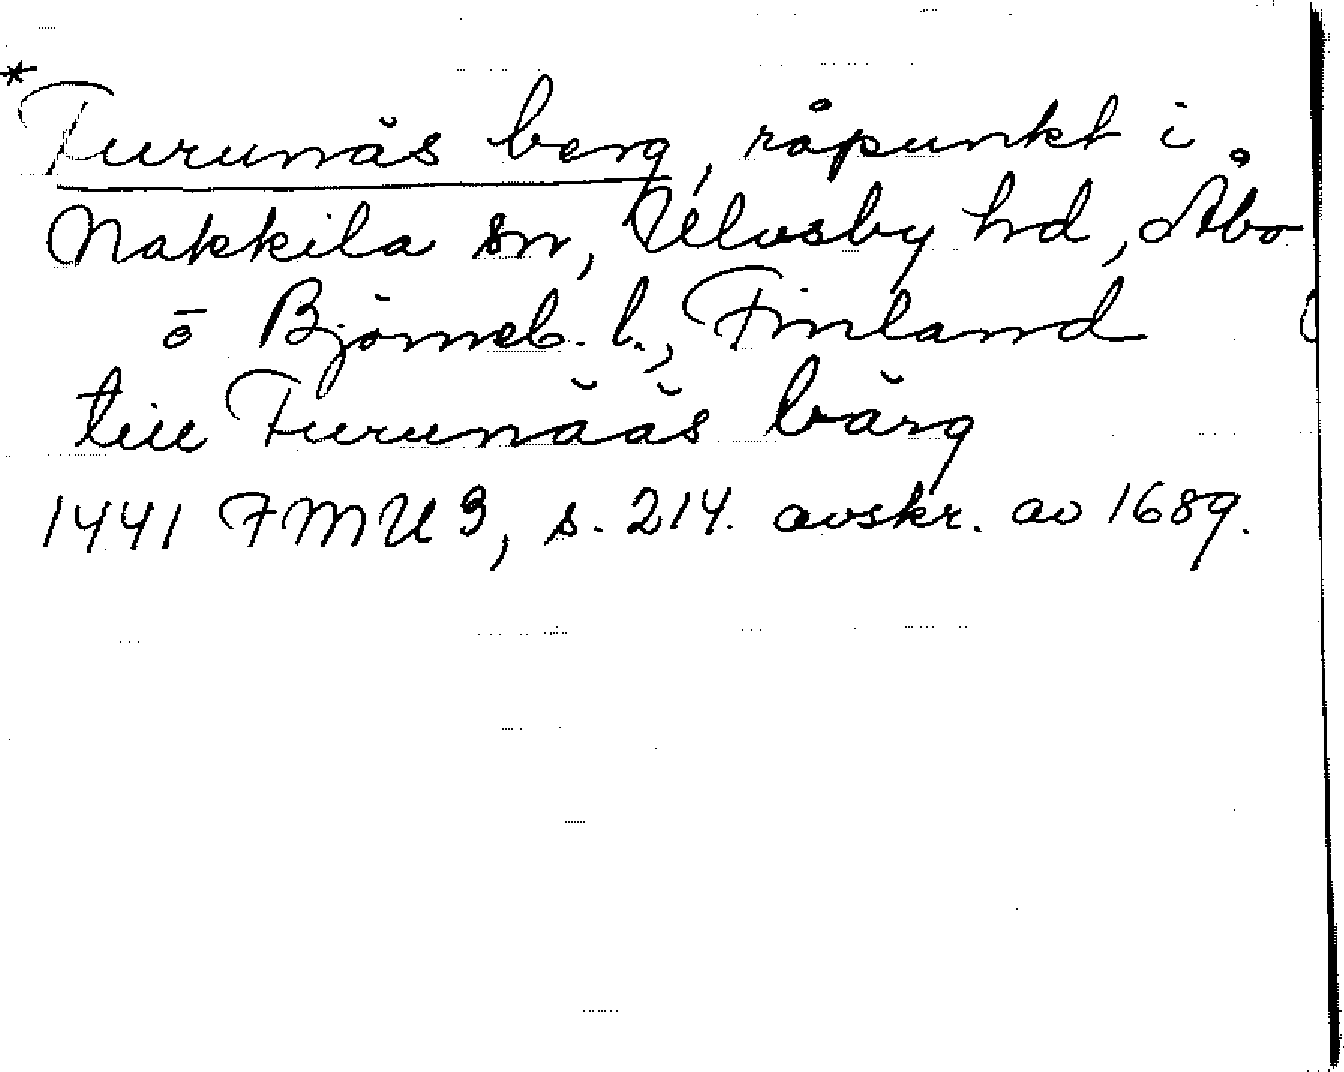 *
Furunäs berg, råpunkt i
Nakkila sn, Ulvsby hd, Åbo
o Björneb. l., Finland
till Furunääs bärg
1441 FMU 3, s. 214. avskr. av 1689.